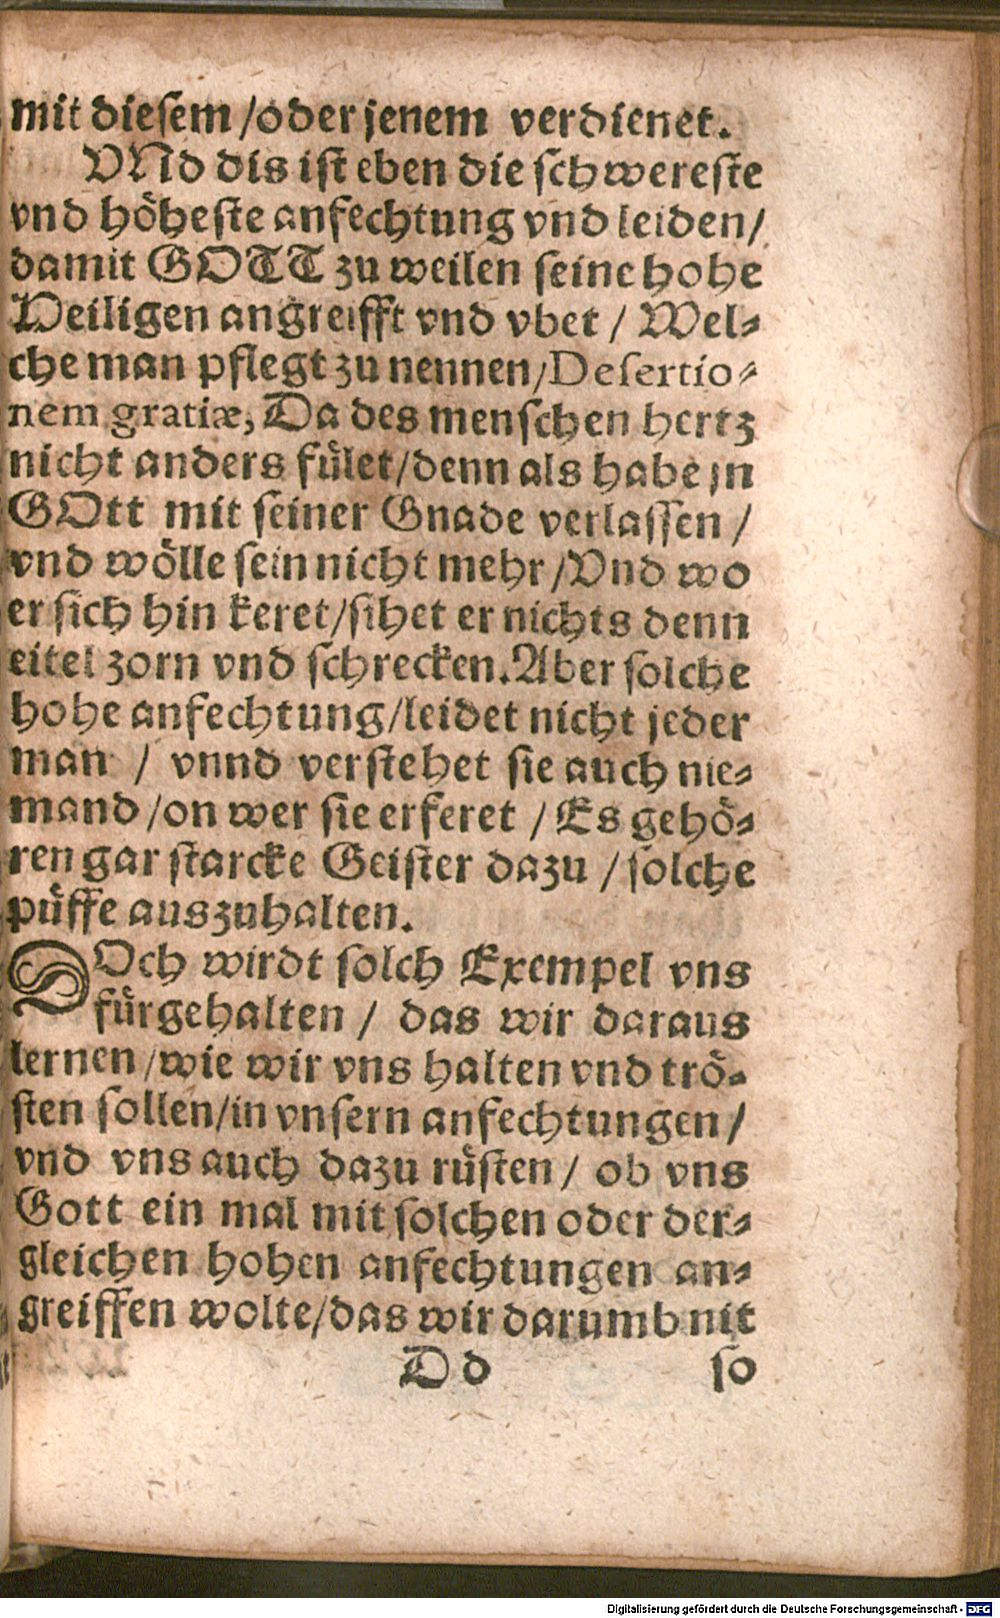 mit dieſem /oder jenem verdienet.
VNd dis iſt eben die ſchwereſte
vnd höheſte anfechtung vnd leiden/
damit GOTT zu weilen ſeine hohe
Heiligen angreifft vnd vbet / Wel⸗
che man pflegt zu nennen/Deſertio⸗
nem gratiæ, Da des menſchen hertz
nicht anders fület/denn als habe jn
GOtt mit ſeiner Gnade verlaſſen /
vnd wölle ſein nicht mehr /Vnd wo
er ſich hin keret/ſihet er nichts denn
eitel zorn vnd ſchrecken.Aber ſolche
hohe anfechtung/leidet nicht jeder
man / vnnd verſtehet ſie auch nie⸗
mand /on wer ſie erferet / Es gehö⸗
ren gar ſtarcke Geiſter dazu / ſolche
püffe auszuhalten.
DOch wirdt ſolch Exempel vns
fürgehalten / das wir daraus
lernen /wie wir vns halten vnd trö⸗
ſten ſollen/in vnſern anfechtungen /
vnd vns auch dazu rüſten / ob vns
Gott ein mal mit ſolchen oder der⸗
gleichen hohen anfechtungen an⸗
greiffen wolte/das wir darumb nit
D d ſo
Digitalisierung gefördert durch die Deutsche Forschungsgemeinschaft - DFG